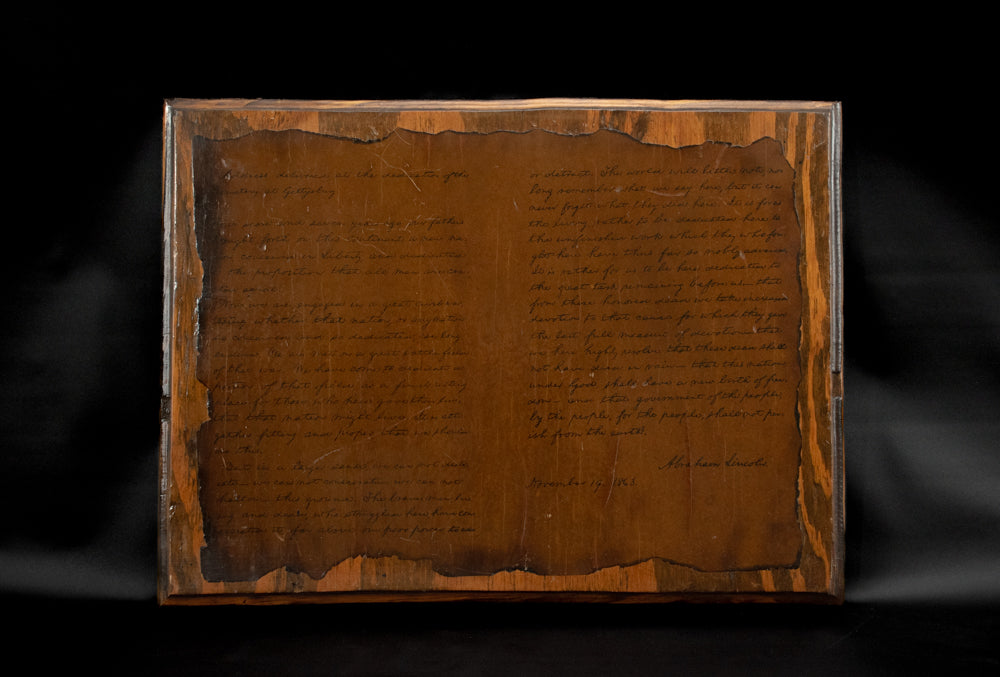 Address delivered at the dedication of the
Cemetery at Gettysburg.
Four score and seven years ago our fathers
brought forth on this continent, a new na-
conceived in Liberty, and dedicated
the proposition that all men are cre-
equal.
Now we are engaged in a great civil war,
testing whether that nation, or any nation
so conceived and so dedicated, can long
endure. We are met on a great battle-field
of that war. We have come to dedicate a
portion of that field, as a final resting
place for those who here gave their lives
that that nation might live. It is alto-
gether fitting and proper that we should
do this.
But, in a larger sense, we can not dedi-
cate— we can not consecrate— we can not
hallow— this ground. The brave men, liv-
ing and dead, who struggled here have con-
secrated it, far above our poor power to add
or detract. The world will little note, nor
long remember what we say here, but it can
never forget what they did here. It is for us
the living, rather, to be dedicated here to
the unfinished work which they who fou-
ght here have thus far so nobly advanced.
It is rather for us to be here dedicated to
the great task remaining before us— that
from these honored dead we take increased
devotion to that cause for which they gave
the last full measure of devotion— that
we here highly resolve that these dead shall
not have died in vain— that this nation,
under God, shall have a new birth of free-
dom— and that government of the people,
by the people, for the people, shall not per-
ish from the earth.
Abraham Lincoln.
November 19. 1863.